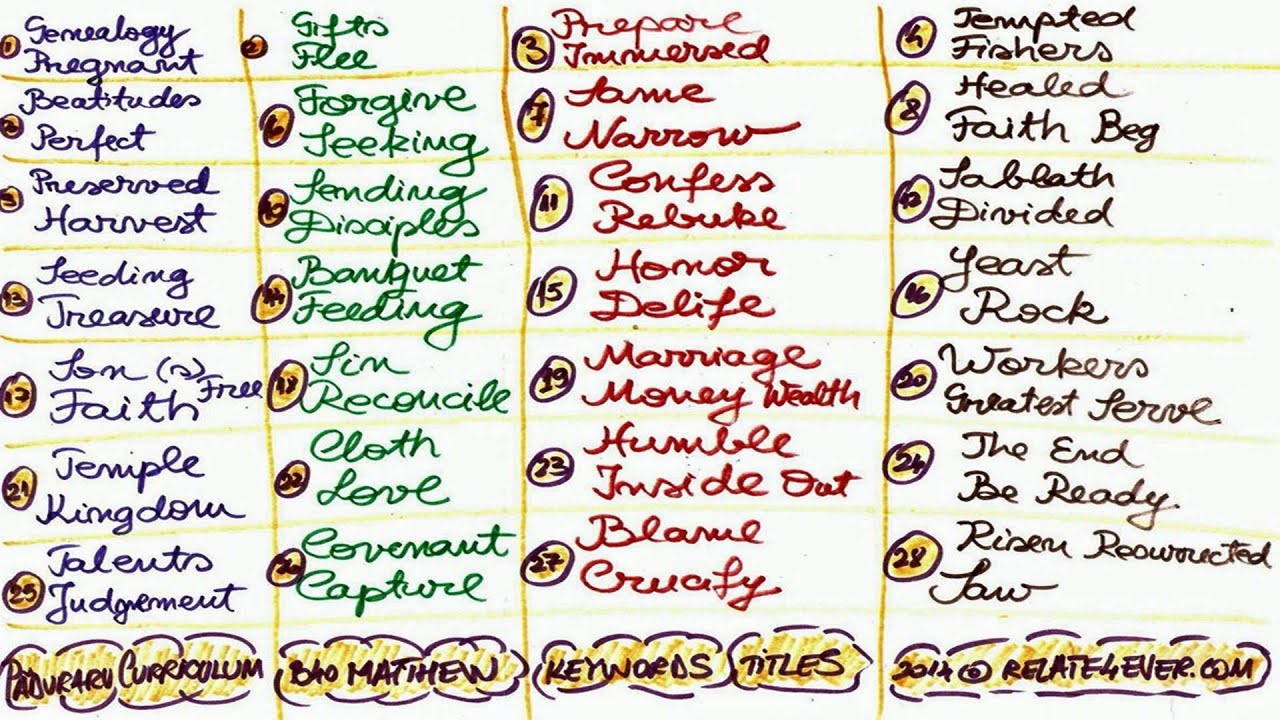 1 Genealogy
Pregnant
2 Gifts
Flee
3 Prepare
Immersed
4 Tempted
Fishers
Beatitudes
Perfect
6 Forgive
Seeking
7 Same
Narrow
8 Healed
Faith Beg
Preserved
Harvest
10 Sending
Disciples
11 Confess
Rebuke
12 Sabbath
Divided
13 Seeding
Treasure
14 Banquet
Feeding
15 Honor
Delife
16 Yeast
Rock
17 Son (s) Free
Faith
18 Sin
Reconcile
19 Marriage
Money Wealth
20 Workers
Greatest Serve
21 Temple
Kingdom
22 Cloth
Love
23 Humble
Inside Out
24 The End
Be Ready
25 Talents
Judgement
26 Covenant
Capture
27 Blame
Crucify
28 Risen Resurrected
Saw
PADURARU CURRICULUM B40 MATTHEW KEYWORDS TITLES 2014 © RELATE4EVER.COM